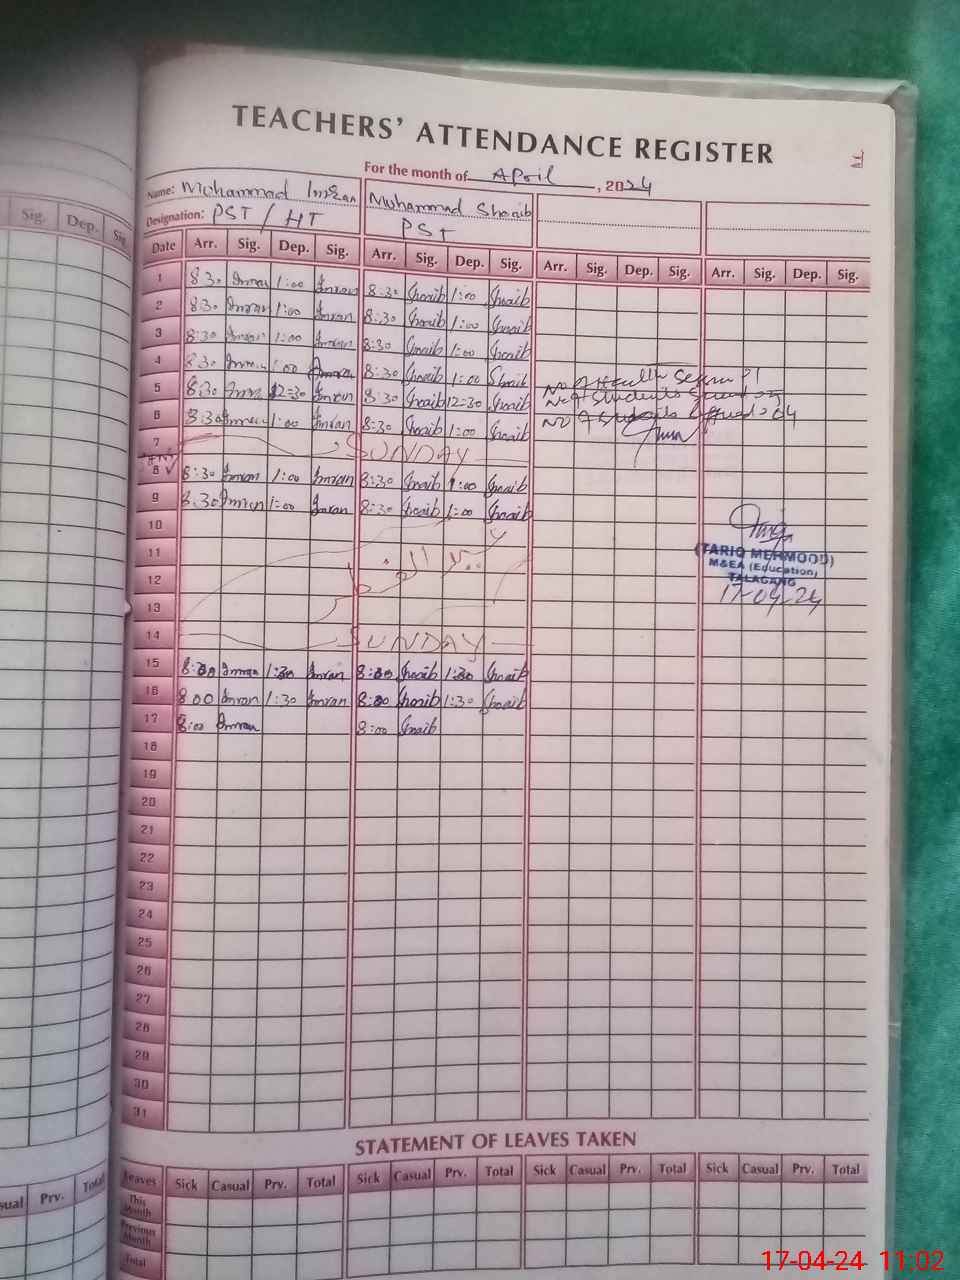 TEACHERS' ATTENDANCE REGISTER
For the month of April, 2024
Name: Mohammad Imran Muhammad Shoaib
Designation: PST / HT PST
Date Arr. Sig. Dep. Sig. Arr. Sig. Dep. Sig. Arr. Sig. Dep. Sig. Arr. Sig. Dep. Sig.
1 8:30 Imran 1:00 Imran 8:30 Shoaib 1:00 Shoaib
2 8:30 Imran 1:00 Imran 8:30 Shoaib 1:00 Shoaib
3 8:30 Imran 1:00 Imran 8:30 Shoaib 1:00 Shoaib
4 8:30 Imran 1:00 Imran 8:30 Shoaib 1:00 Shoaib
No of Health
5 8:30 Imran 12:30 Imran 8:30 Shoaib 12:30 Shoaib
No of Students
6 8:30 Imran 1:00 Imran 8:30 Shoaib 1:00 Shoaib
No of Students 04
7 SUNDAY
8 8:30 Imran 1:00 Imran 8:30 Shoaib 1:00 Shoaib
9 8:30 Imran 1:00 Imran 8:30 Shoaib 1:00 Shoaib
10
11 عید الفطر
12
13
14 SUNDAY
(TARIQ MEHMOOD)
M&EA (Education)
TALAGANG
17-04-24
15 8:00 Imran 1:30 Imran 8:00 Shoaib 1:30 Shoaib
16 8:00 Imran 1:30 Imran 8:00 Shoaib 1:30 Shoaib
17 8:00 Imran 8:00 Shoaib
18
19
20
21
22
23
24
25
26
27
28
29
30
31
STATEMENT OF LEAVES TAKEN
Leaves Sick Casual Prv. Total Sick Casual Prv. Total Sick Casual Prv. Total Sick Casual Prv. Total
This Month
Previous Month
Total
Sig. Dep. Sig.
Prv. Total
17-04-24 11:02